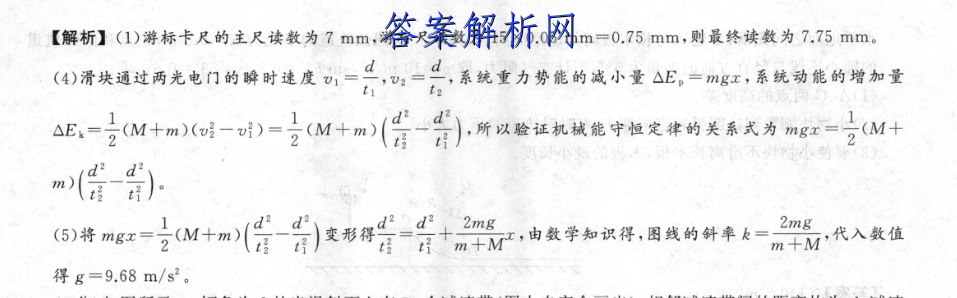 答案解析网
【解析】(1)游标卡尺的主尺读数为 7 mm,游 尺 数 mm=0.75 mm,则最终读数为 7.75 mm。
(4)滑块通过两光电门的瞬时速度 v₁=d/t₁,v₂=d/t₂,系统重力势能的减小量 ΔEₚ=mgx,系统动能的增加量
ΔEₖ=1/2(M+m)(v₂²−v₁²)=1/2(M+m)(d²/t₂²−d²/t₁²),所以验证机械能守恒定律的关系式为 mgx=1/2(M+
m)(d²/t₂²−d²/t₁²)。
(5)将 mgx=1/2(M+m)(d²/t₂²−d²/t₁²)变形得d²/t₂²=d²/t₁²+2mg/(m+M)x,由数学知识得,图线的斜率 k=2mg/(m+M),代入数值
得 g=9.68 m/s²。